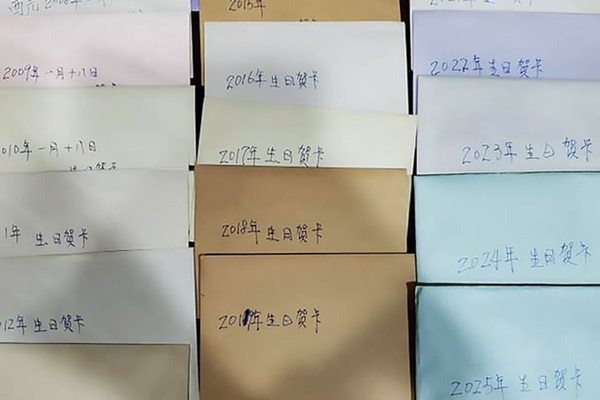 西元2008年一月
2009年一月十八日
2010年一月十八日
1年 生日賀卡
2012年生日賀卡
2015年
2016年生日賀卡
2017年生日賀卡
2018年生日賀卡
生日賀卡
2022年生日賀卡
2023年生日賀卡
2024年生日賀卡
2025年生日賀卡